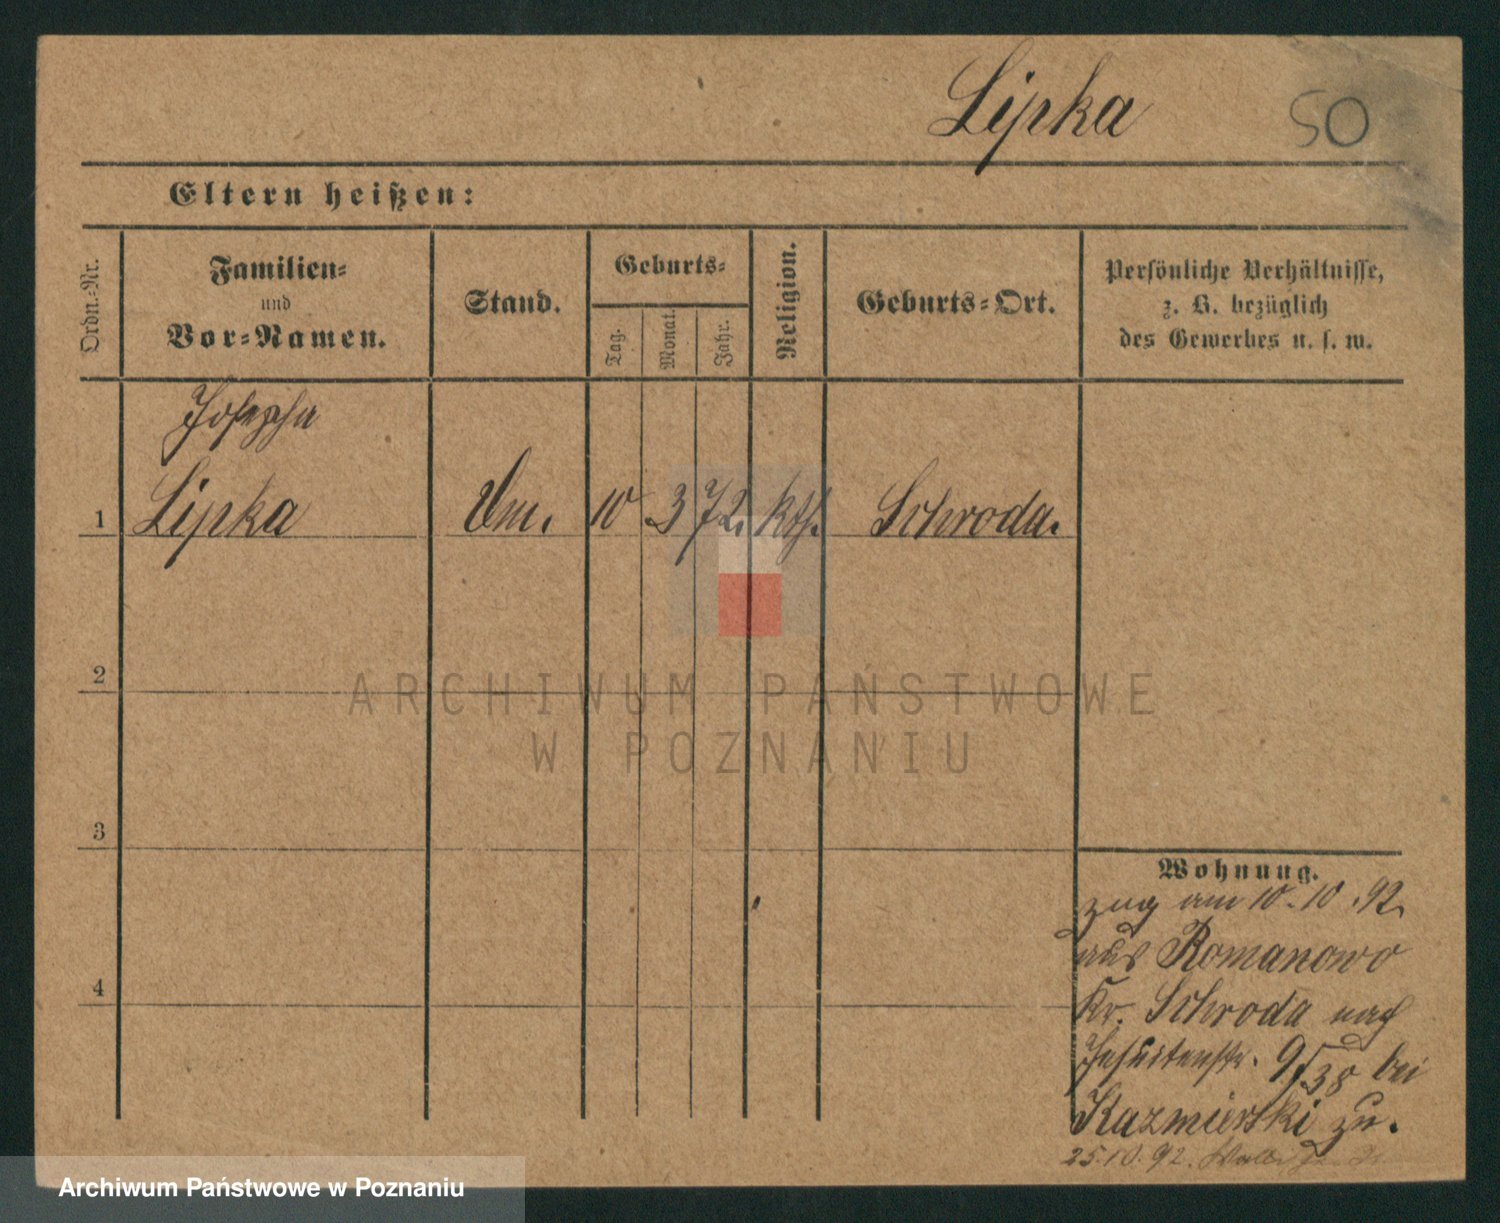 Lipka 50
Eltern heißen:
Ordn.-Nr.
Familien-
und
Vor-Namen.
Stand.
Geburts-
Tag.
Monat.
Jahr.
Religion.
Geburts-Ort.
Persönliche Verhältnisse,
z. B. bezüglich
des Gewerbes u. s. w.
Josepha
1 Lipka Um. 10 3 72. kth. Schroda.
2
ARCHIWUM PAŃSTWOWE
W POZNANIU
3
4
Wohnung.
zug am 10.10.92.
aus Romanowo
Kr. Schroda nach
Jesuitenstr. 9/38 bei
Kazmierski zu.
25.10.92.
Archiwum Państwowe w Poznaniu